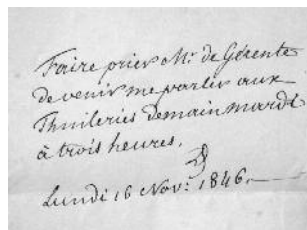 Faire prier Mr. de Gérente
de venir me parler aux
Thuileries demain mardi
à trois heures.
Lundi 16 Nov: 1846.